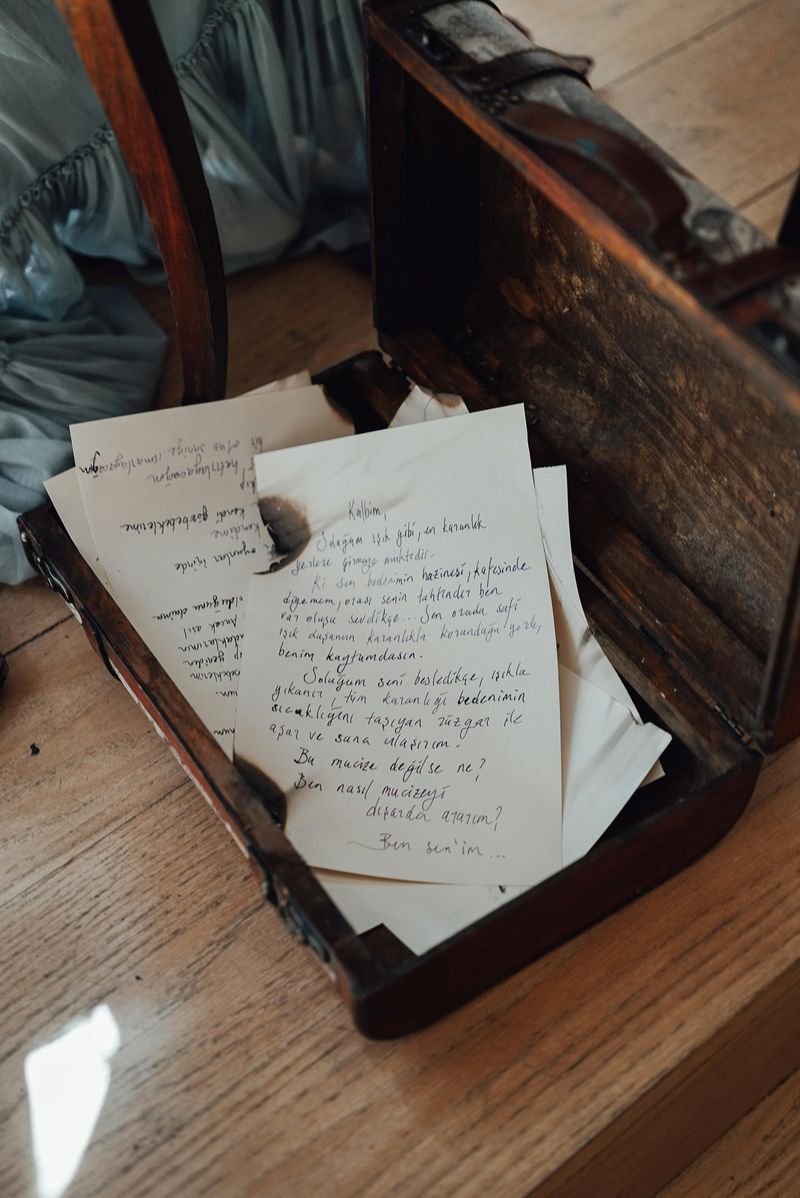 Kalbim,
Soluğum ışık gibi, en karanlık
yerlere girmeye muktedir.
Ki sen bedenimin hazinesi, kafesinde
diyemem, orası senin tahtındır ben
var oluşu sevdikçe... Sen orada safi
ışık duşunun karanlıkla korunduğu yerde,
benim kuytumdasın.
Soluğum seni besledikçe, ışıkla
yıkanır tüm karanlığı bedenimin
sıcaklığını taşıyan rüzgar ile
aşar ve sana ulaşırım.
Bu mucize değilse ne?
Ben nasıl mucizeyi
dışarda ararım?
Ben sen'im...
hatırlayacağım
otuz saniye ısmarlayacağım
kendi gözbebeklerime
kendime
oyunlar içinde
olduğunu